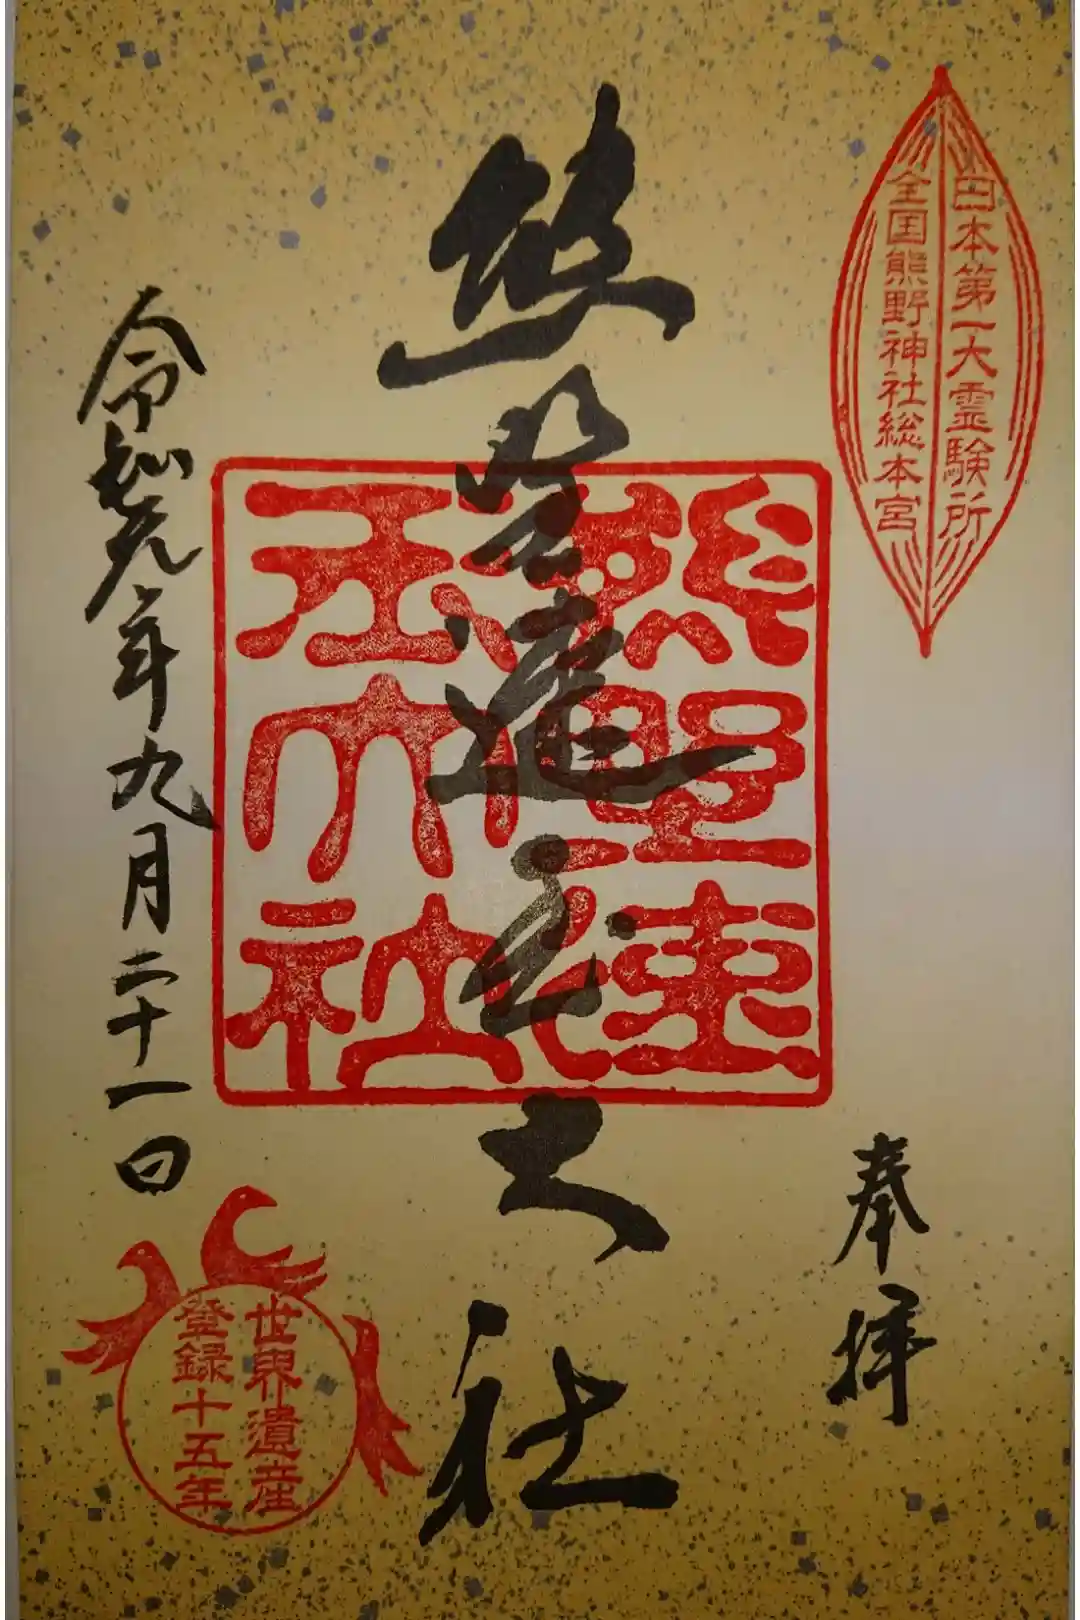 日本第一大霊験所
全国熊野神社総本宮
奉拝
熊野速玉大社
熊野速玉大社
令和元年九月二十一日
世界遺産
登録十五年